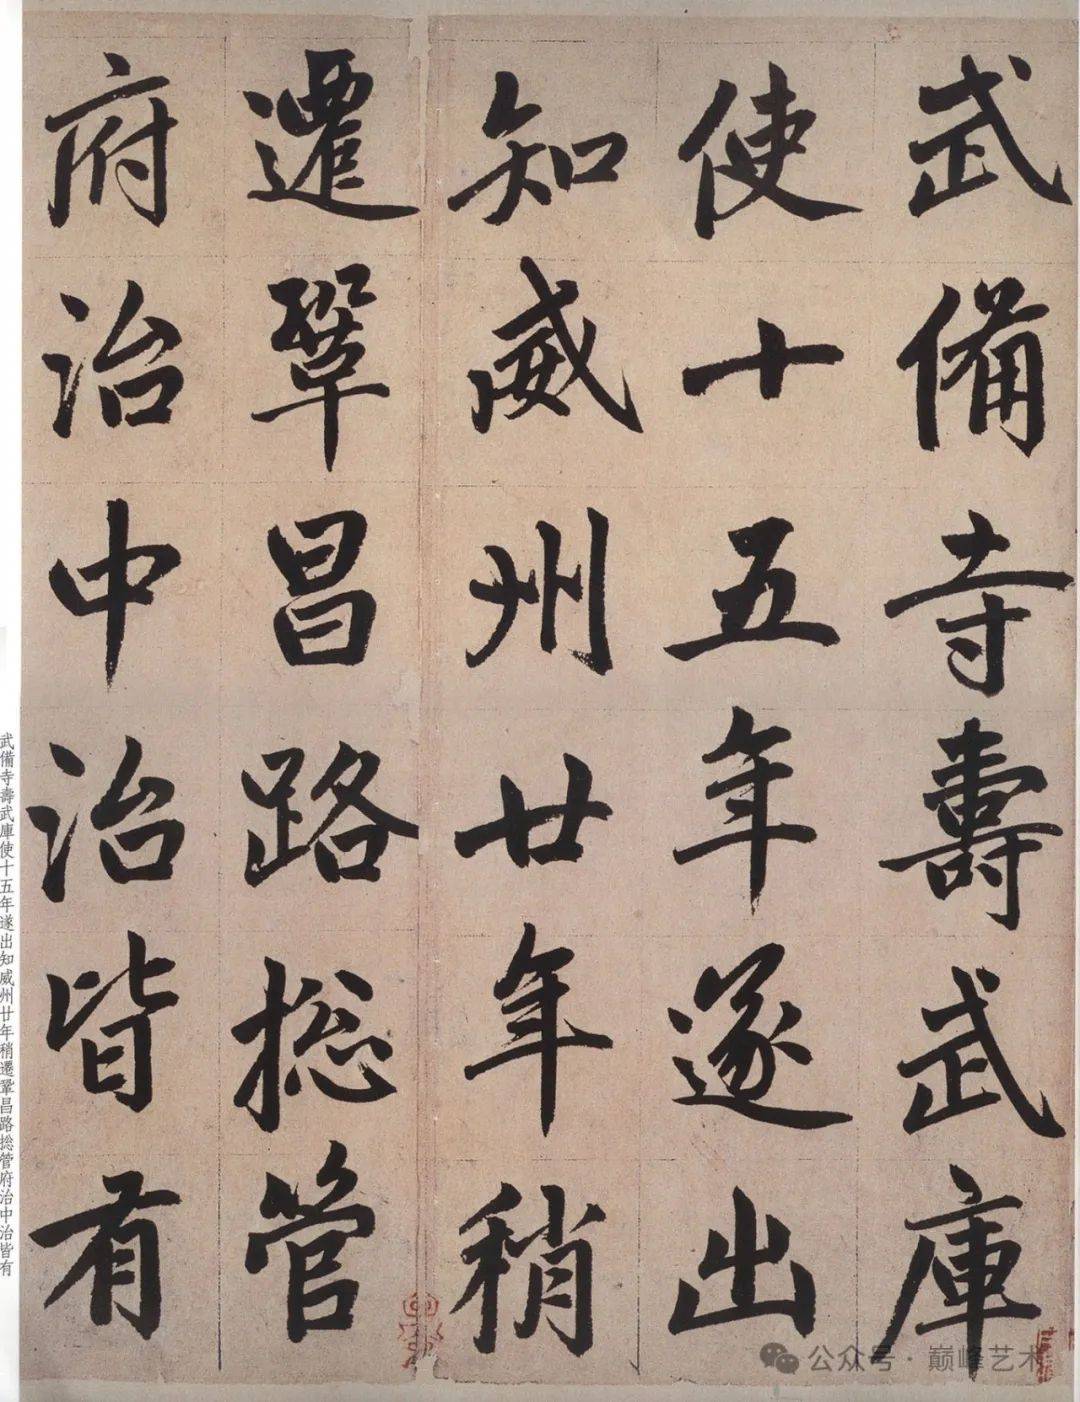 武備寺壽武庫
使十五年遂出
知威州廿年稍
遷鞏昌路捴管
府治中治皆有
武備寺壽武庫使十五年遂出知威州廿年稍遷鞏昌路捴管府治中治皆有
公众号·巅峰艺术